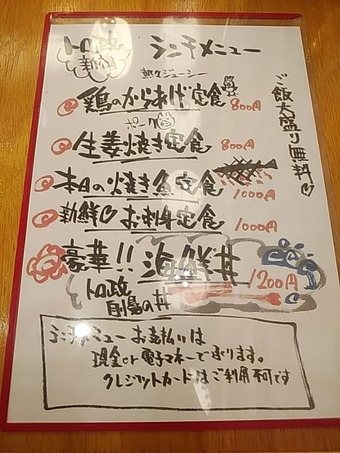 トロ政 ランチメニュー
新鮮
熱々ジューシー
鶏のからあげ定食 800円
ポーク
生姜焼き定食 800円
本日の焼き魚定食 1000円
新鮮♡お刺身定食 1000円
豪華!!海鮮丼 1200円
トロ政
自慢の丼
ご飯大盛り無料♡
ランチメニューお支払いは
現金or電子マネーで承ります。
クレジットカードはご利用不可です